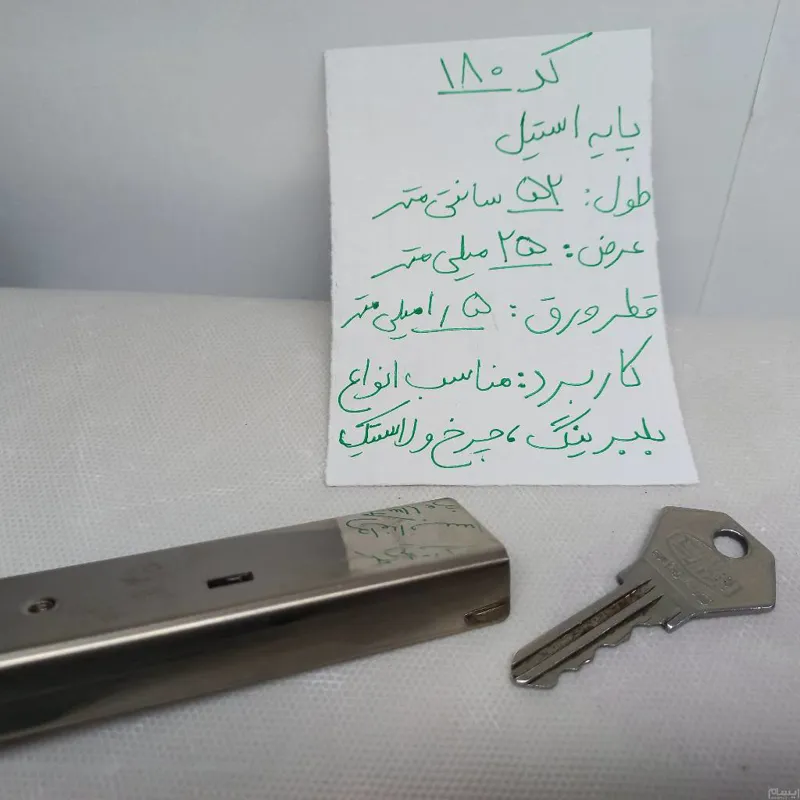 کد ۱۸۰
پایه استیل
طول: ۵۲ سانتی متر
عرض: ۲۵ میلی متر
قطر ورق: ۱/۵ میلی متر
کاربرد: مناسب انواع
بلبرینگ، چرخ و لاستیک
ایسام